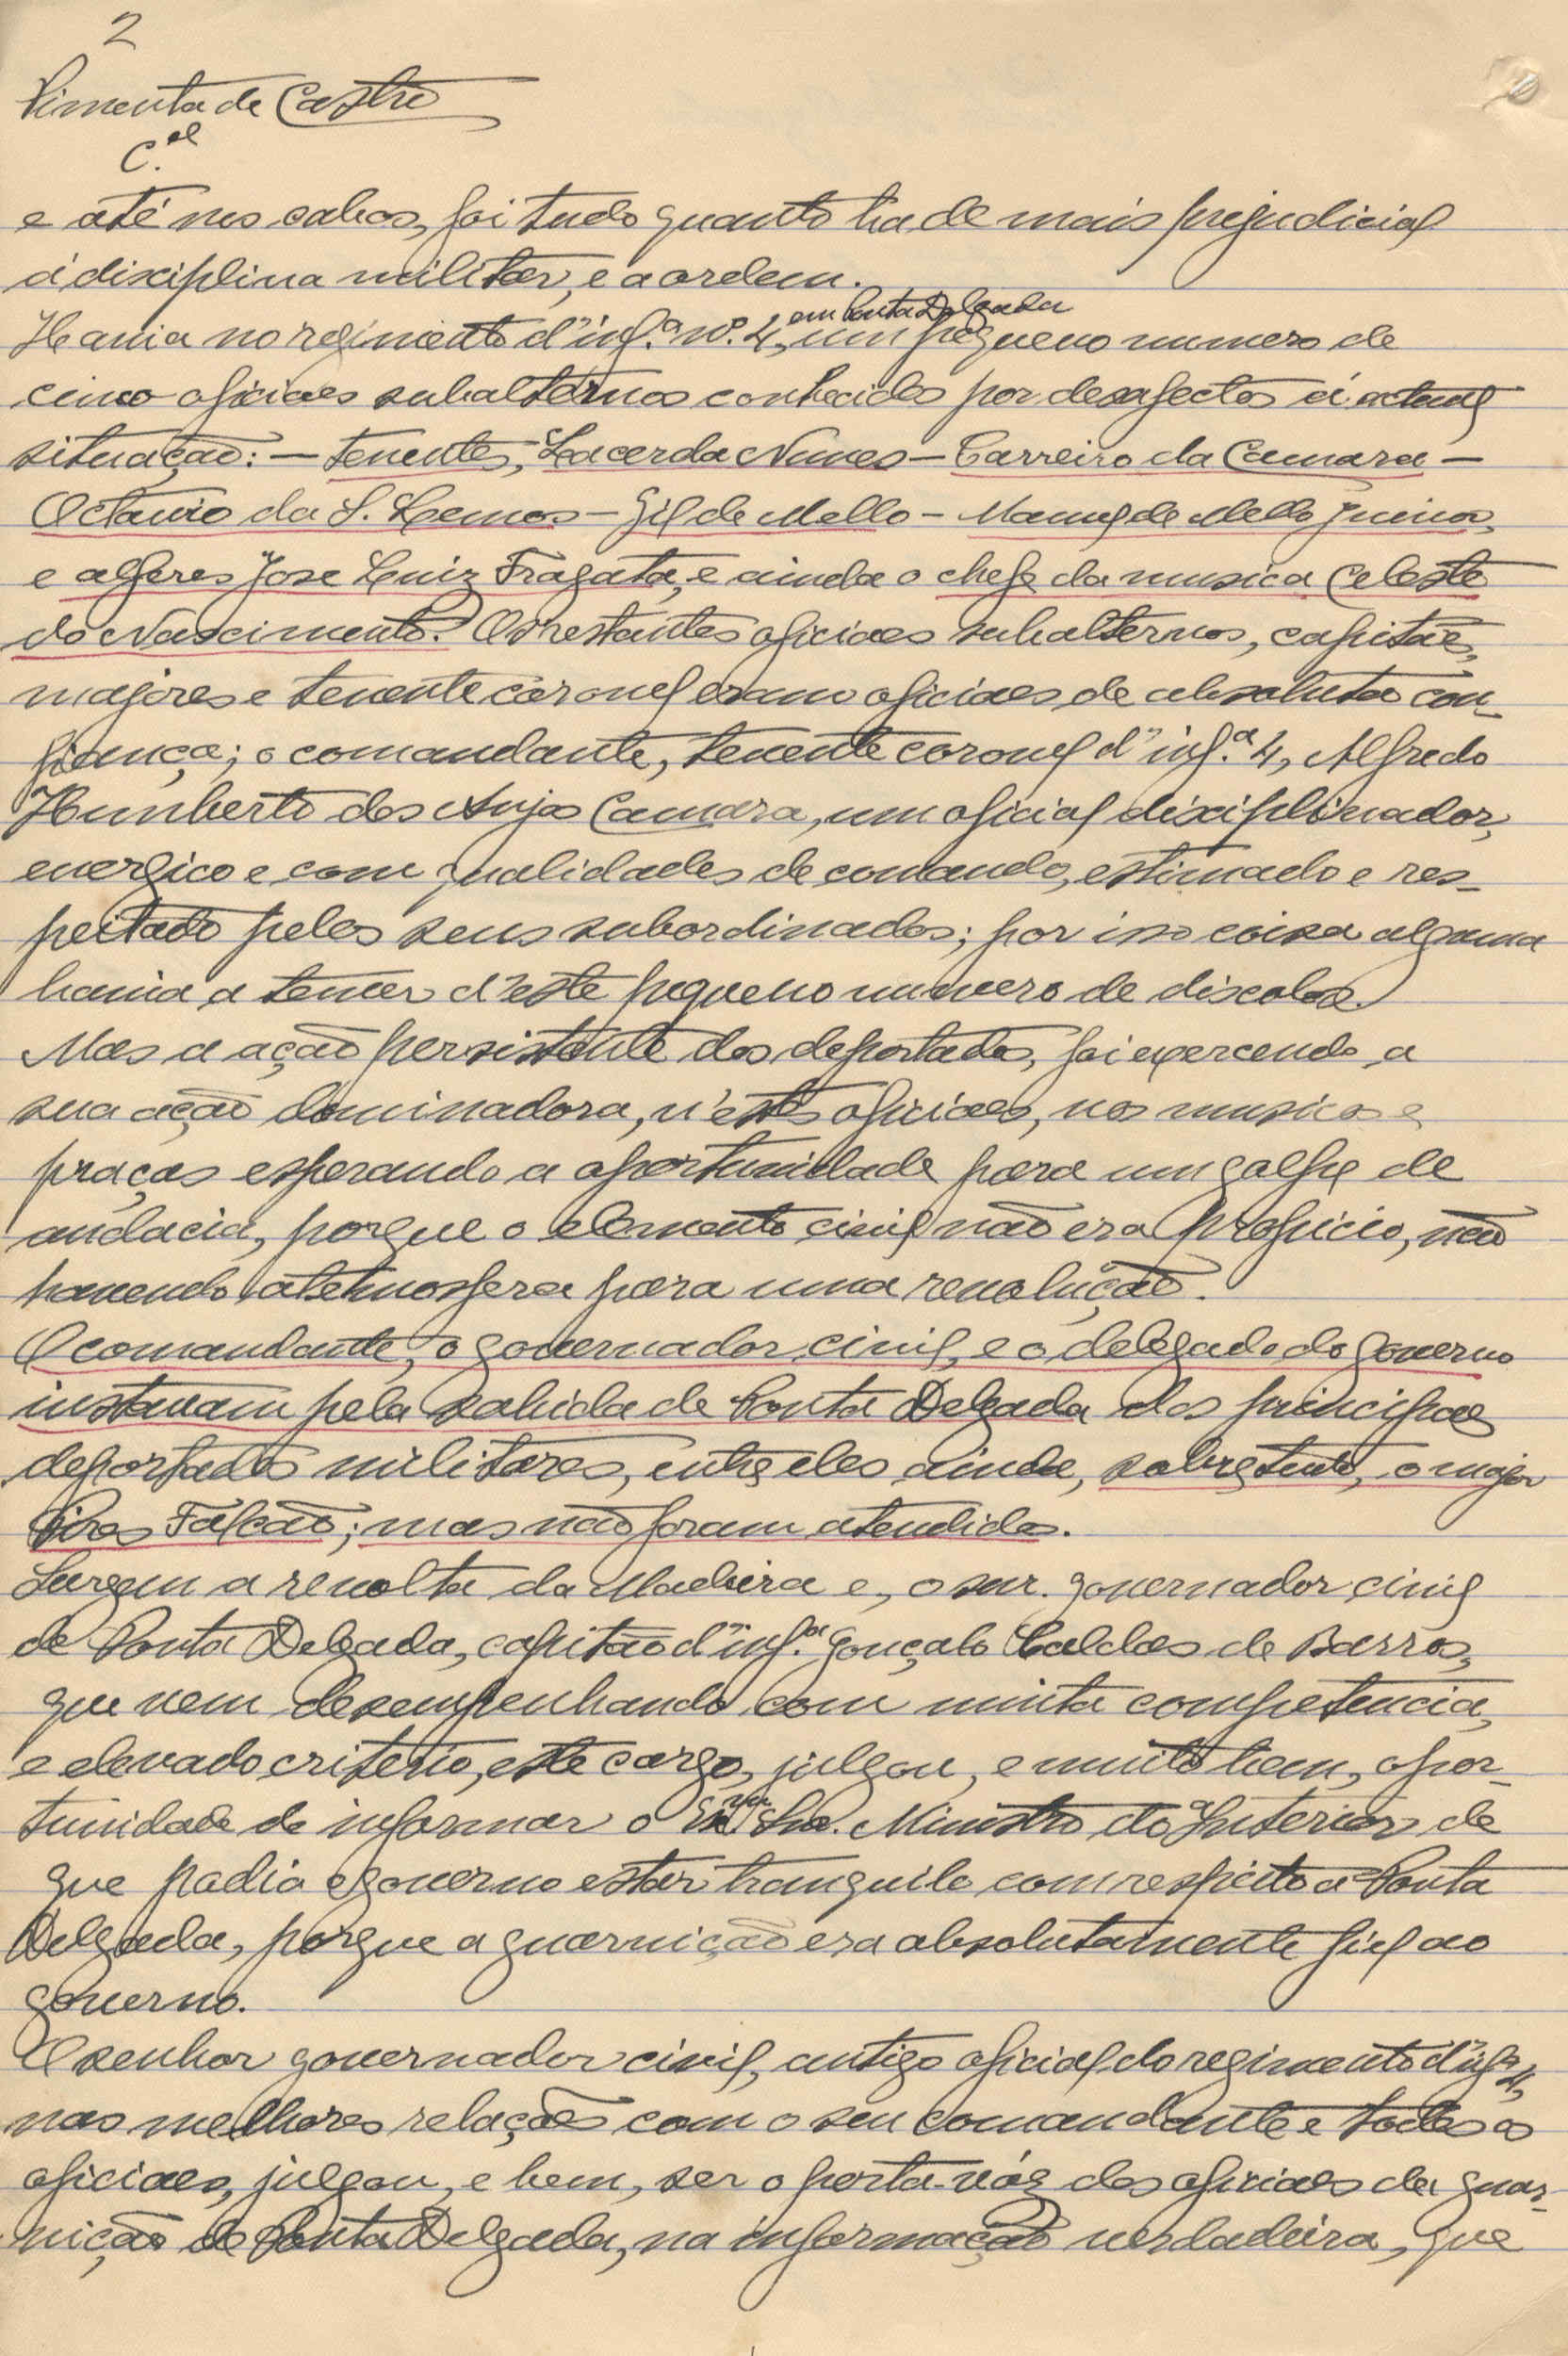 2
Pimenta de Castro
C.el
e até nos cabos, foi tudo quanto ha de mais prejudicial
á disciplina militar, e a ordem.
em Ponta Delgada
Havia no regimento d'inf.a n.º 4, um pequeno numero de
cinco oficiaes subalternos conhecidos por desafectos á actual
situação: — tenentes, Lacerda Nunes — Carreiro da Camara —
Octavio da S. Lemos — Gil de Mello — Manuel de Mello Junior,
e alferes Jose Luiz Fragata, e ainda o chefe da musica Celeste
do Nascimento. Os restantes oficiaes subalternos, capitães,
majores e tenente coronel eram oficiaes de absoluta con-
fiança; o comandante, tenente coronel d'inf.a 4, Alfredo
Humberto dos Anjos Camara, um oficial disciplinador,
energico e com qualidades de comando, estimado e res-
peitado pelos seus subordinados; por isso coisa alguma
havia a temer d'este pequeno numero de discolos.
Mas a ação persistente dos deportados, foi exercendo a
sua ação dominadora, n'estes oficiaes, nos musicos e
praças esperando a oportunidade para um golpe de
audacia, porque o elemento civil não era propicio, não
havendo atehmosfera para uma revolução.
O comandante, o governador civil, e o delegado do governo
instavam pela sahida de Ponta Delgada dos principaes
deportados militares, entre eles ainda, sobretudo, o major
Pires Falcão; mas não foram atendidos.
Surgem a revolta da Madeira e, o snr. governador civil
de Ponta Delgada, capitão d'inf.a Gonçalo Caldas de Barros,
que vem desempenhando com muita competencia,
e elevado criterio, este cargo, julgou, e muito bem, opor-
tunidade de informar o Ex.mo Snr. Ministro do Interior de
que podia o governo estar tranquilo com respeito a Ponta
Delgada, porque a guarnição era absolutamente fiel ao
governo.
O senhor governador civil, antigo oficial do regimento d'inf.a 4,
nas melhores relações com o seu comandante e todos os
oficiaes, julgou, e bem, ser o porta-vóz dos oficiaes da guar-
nição de Ponta Delgada, na informação verdadeira, que